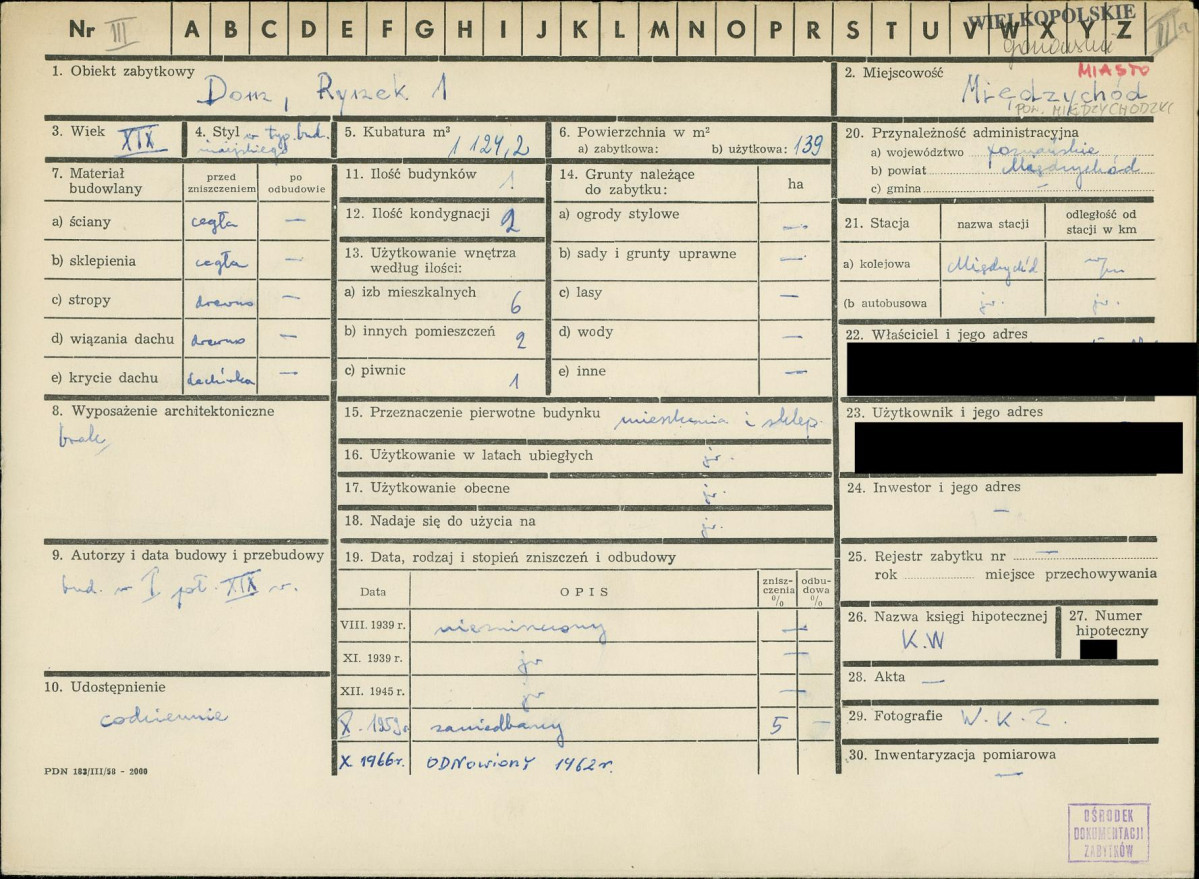 Nr III A B C D E F G H I J K L M N O P R S T U V W X Y Z
WIELKOPOLSKIE
1. Obiekt zabytkowy
Dom, Rynek 1
2. Miejscowość
MIASTO
Międzychód
POW. MIĘDZYCHODZKI
3. Wiek XIX
4. Styl w typ. bud.
miejskiego
5. Kubatura m³
1124,2
6. Powierzchnia w m²
a) zabytkowa: b) użytkowa: 139
7. Materiał budowlany
przed zniszczeniem
po odbudowie
a) ściany cegła —
b) sklepienia cegła —
c) stropy drewno —
d) wiązania dachu drewno —
e) krycie dachu dachówka —
8. Wyposażenie architektoniczne
brak
9. Autorzy i data budowy i przebudowy
bud. w I poł. XIX w.
10. Udostępnienie
codziennie
PDN 182/III/58 - 2000
11. Ilość budynków 1
12. Ilość kondygnacji 2
13. Użytkowanie wnętrza
według ilości:
a) izb mieszkalnych 6
b) innych pomieszczeń 2
c) piwnic 1
14. Grunty należące
do zabytku: ha
a) ogrody stylowe —
b) sady i grunty uprawne —
c) lasy —
d) wody —
e) inne —
15. Przeznaczenie pierwotne budynku mieszkania i sklep.
16. Użytkowanie w latach ubiegłych jw.
17. Użytkowanie obecne jw.
18. Nadaje się do użycia na jw.
19. Data, rodzaj i stopień zniszczeń i odbudowy
Data OPIS zniszczenia % odbudowa %
VIII. 1939 r. niezniszczony —
XI. 1939 r. jw —
XII. 1945 r. jw —
X. 1959r zaniedbany 5 —
X 1966r. ODNOWIONY 1962r.
20. Przynależność administracyjna
a) województwo poznańskie
b) powiat Międzychód
c) gmina —
21. Stacja nazwa stacji odległość od stacji w km
a) kolejowa Międzychód
(b autobusowa jw. jw.
22. Właściciel i jego adres
23. Użytkownik i jego adres
24. Inwestor i jego adres
—
25. Rejestr zabytku nr —
rok miejsce przechowywania
26. Nazwa księgi hipotecznej
K.W
27. Numer
hipoteczny
28. Akta —
29. Fotografie W.K.Z.
30. Inwentaryzacja pomiarowa
—
OŚRODEK
DOKUMENTACJI
ZABYTKÓW